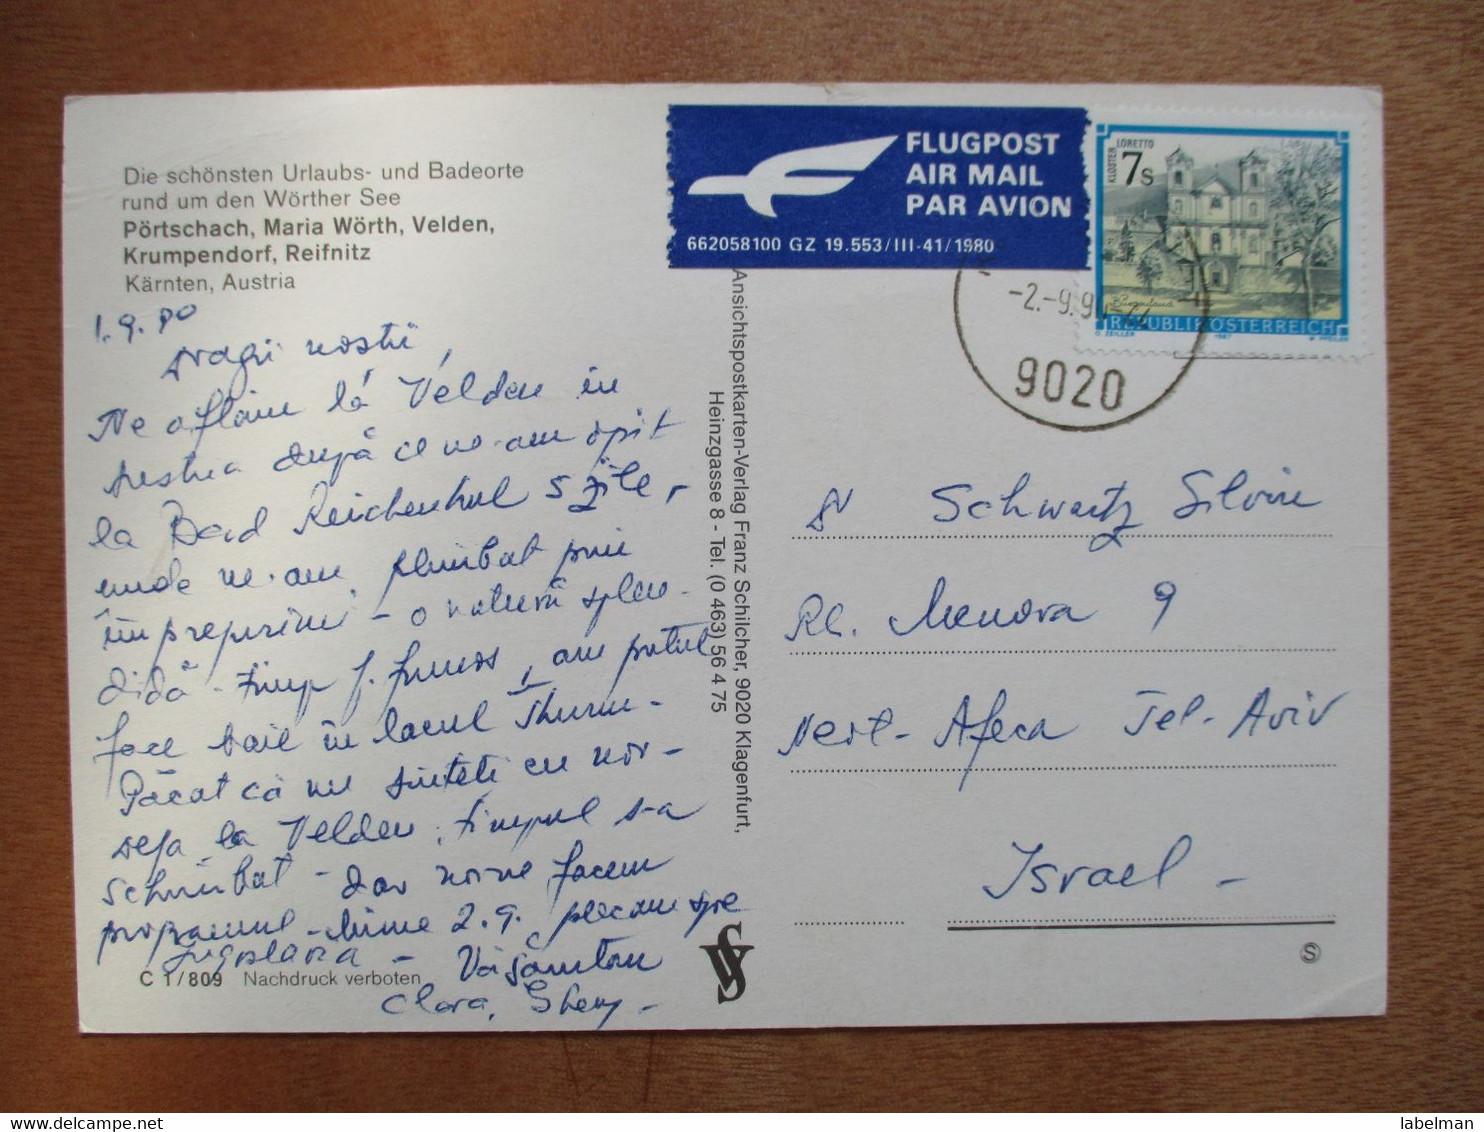 Die schönsten Urlaubs- und Badeorte
rund um den Wörther See
Pörtschach, Maria Wörth, Velden,
Krumpendorf, Reifnitz
Kärnten, Austria
1.9.90
Dragii noștri,
Ne aflăm la Velden în
Austria după ce ne-am oprit
la Bad Reichenhal 5 zile,
unde ne-am plimbat prin
împrejurimi - o natură splen-
didă - timp f. frumos, am putut
face baie în lacul
Păcat că nu sinteți cu noi
la Velden, timpul s-a
schimbat - dar noi ne facem
programul - mîine 2.9. plecăm spre
Jugoslavia -
Clara,
C 1/809 Nachdruck verboten
Ansichtspostkarten-Verlag Franz Schilcher, 9020 Klagenfurt,
Heinzgasse 8 - Tel. (0 463) 56 4 75
FLUGPOST
AIR MAIL
PAR AVION
662058100 GZ 19.553/III-41/1980
KLOSTER LORETTO
7s
Burgenland
REPUBLIK ÖSTERREICH
O. ZEILLER 1987 W. PFEILER
-2.-9.9
9020
Schwartz Silviu
Menora 9
Afeca Tel-Aviv
Israel -
S
labelman